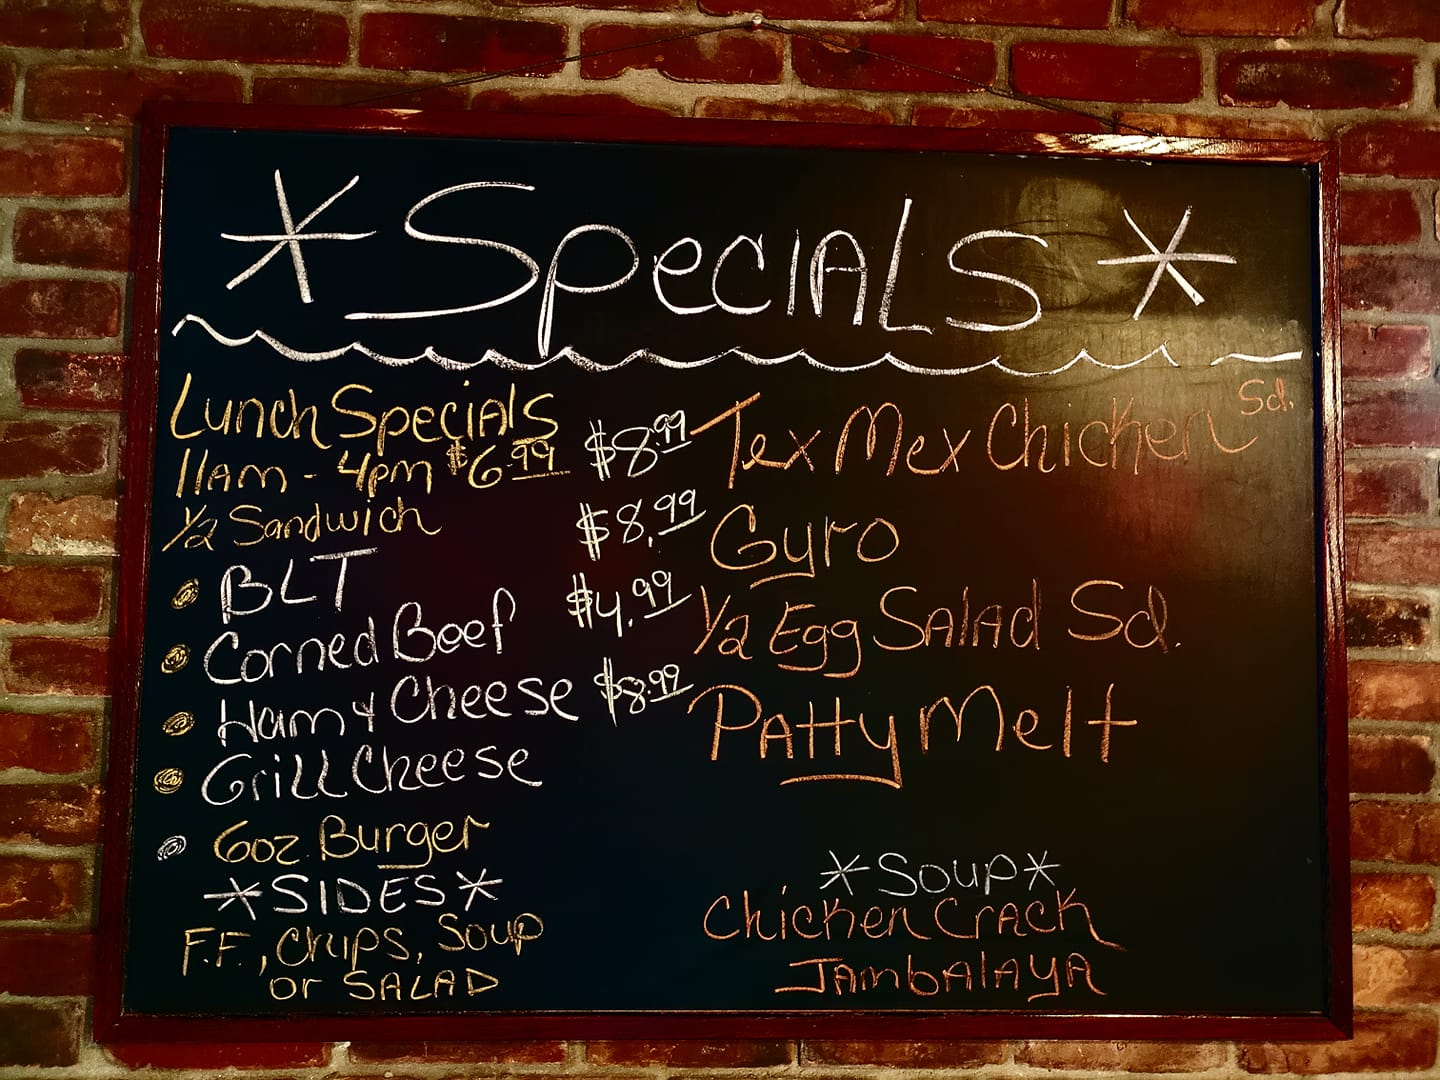 *Specials*
Lunch Specials
11am - 4pm $6.99
1/2 Sandwich
BLT
Corned Beef
Ham & Cheese
Grill Cheese
6oz. Burger
*SIDES*
F.F., Chips, Soup
or SALAD
$8.99 Tex Mex Chicken Sd.
$8.99 Gyro
$4.99 1/2 Egg Salad Sd.
$8.99 Patty Melt
*Soup*
Chicken Crack
Jambalaya